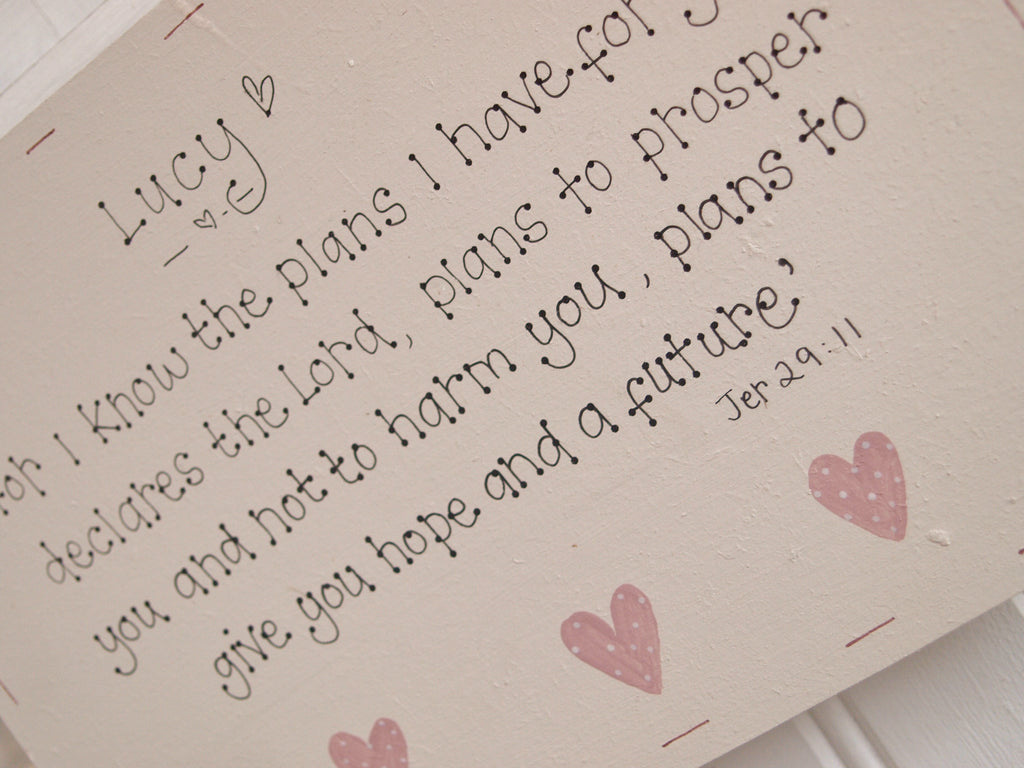 Lucy
for I know the plans I have for
declares the Lord, plans to prosper
you and not to harm you, plans to
give you hope and a future,
Jer 29:11